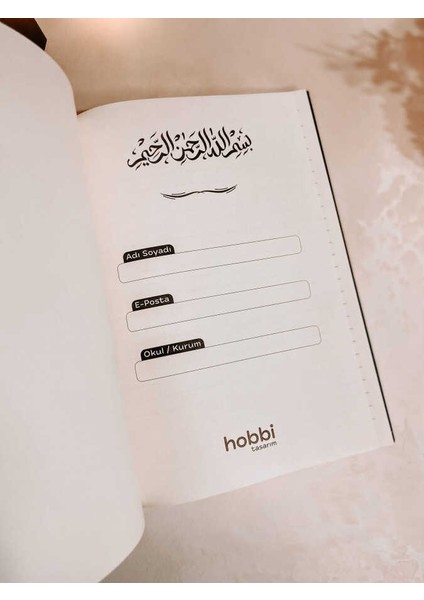 بِسْمِ اللّٰهِ الرَّحْمٰنِ الرَّحِيْمِ
Adı Soyadı
E-Posta
Okul / Kurum
hobbi
tasarım